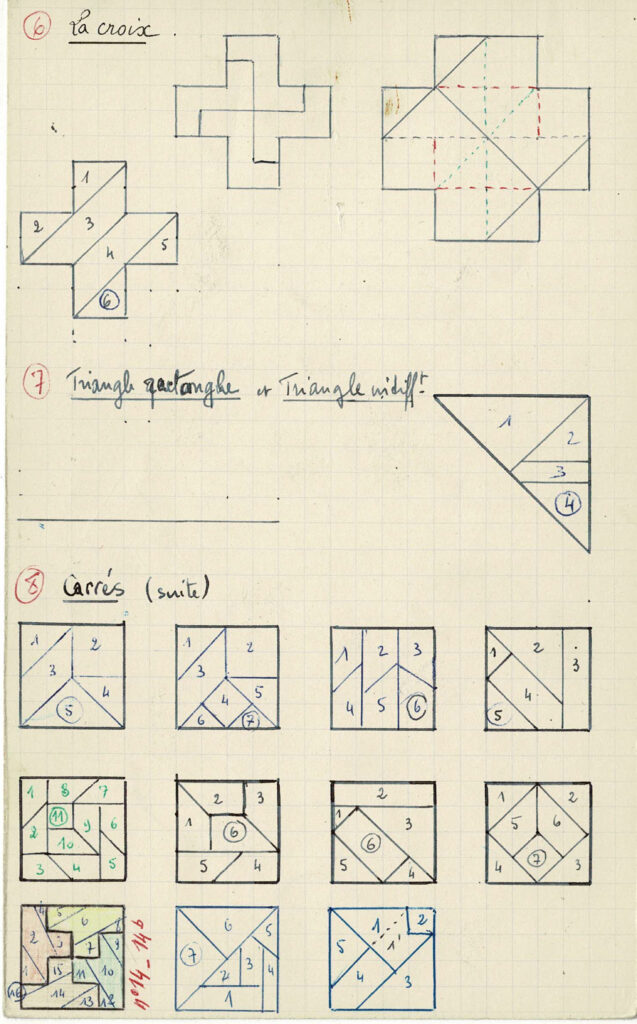 6 La croix.
1
2 3
4 5
6
7 Triangle rectangle et Triangle indifft
1
2
3
4
8 Carrés (suite)
1 2
3 4
5
1 2
3
4 5
6 7
1 2 3
4 5 6
1 2 3
4
5
1 8 7
11
2 9 6
10
3 4 5
2 3
1 6
5 4
2
1 3
6
5 4
1 2
5 6
7
4 3
14 5 6 8
2 3 7 9
1 15 11 10
16 14 13 12
n°14 - 14b
6 5
7
2 3 4
1
1 2
5 1'
4 3